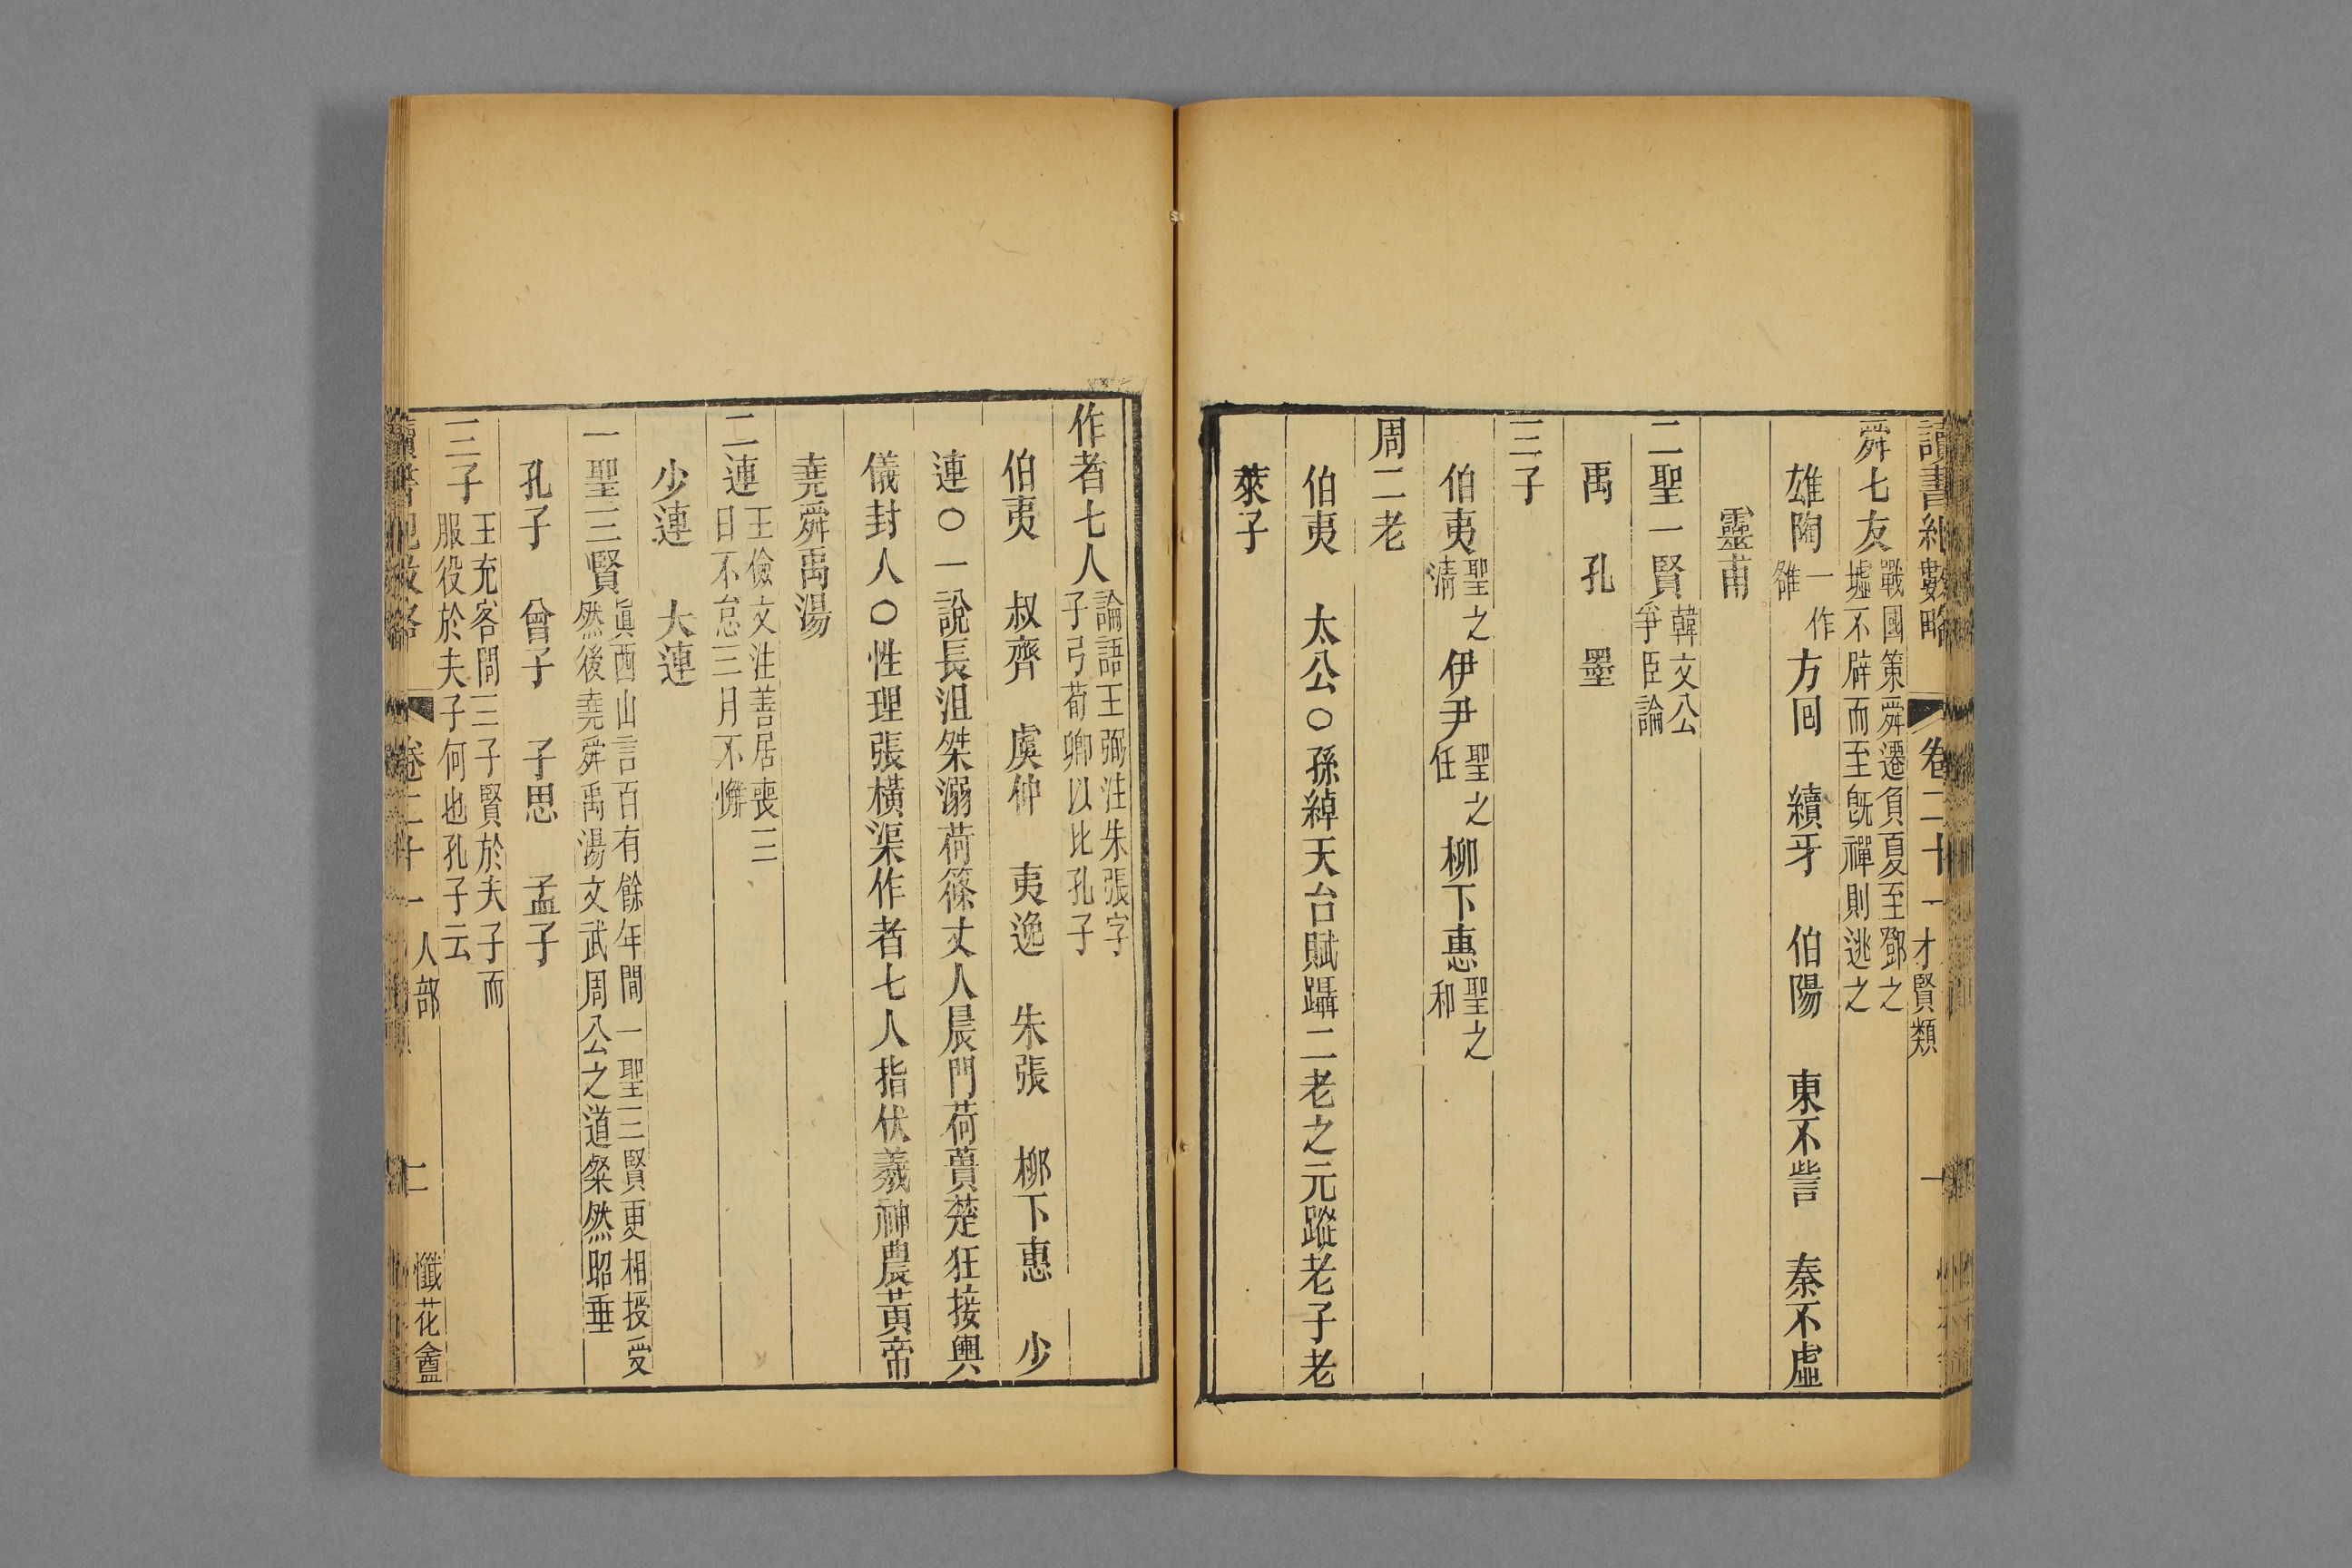 讀書紀數略 卷二十一 才賢類 一
舜七友 戰國策舜遷負夏至鄧之墟不辟而至旣禪則逃之
雄陶 一作雒 方回 續牙 伯陽 東不訾 秦不虛
靈甫
二聖一賢 韓文公爭臣論
禹 孔 墨
三子
伯夷 聖之清 伊尹 聖之任 柳下惠 聖之和
周二老
伯夷 太公○孫綽天台賦躡二老之元蹤老子老
萊子
作者七人 論語王弼注朱張字子弓荀卿以比孔子
伯夷 叔齊 虞仲 夷逸 朱張 柳下惠 少
連○一說長沮桀溺荷篠丈人晨門荷蕢楚狂接輿
儀封人○性理張橫渠作者七人指伏羲神農黃帝
堯舜禹湯
二連 王儉文注善居喪三日不怠三月不懈
少連 大連
一聖三賢 眞西山言百有餘年間一聖三賢更相授受然後堯舜禹湯文武周公之道粲然昭垂
孔子 曾子 子思 孟子
三子 王充客問三子賢於夫子而服役於夫子何也孔子云
讀書紀數略 卷二十一 人部 二 懺花盦